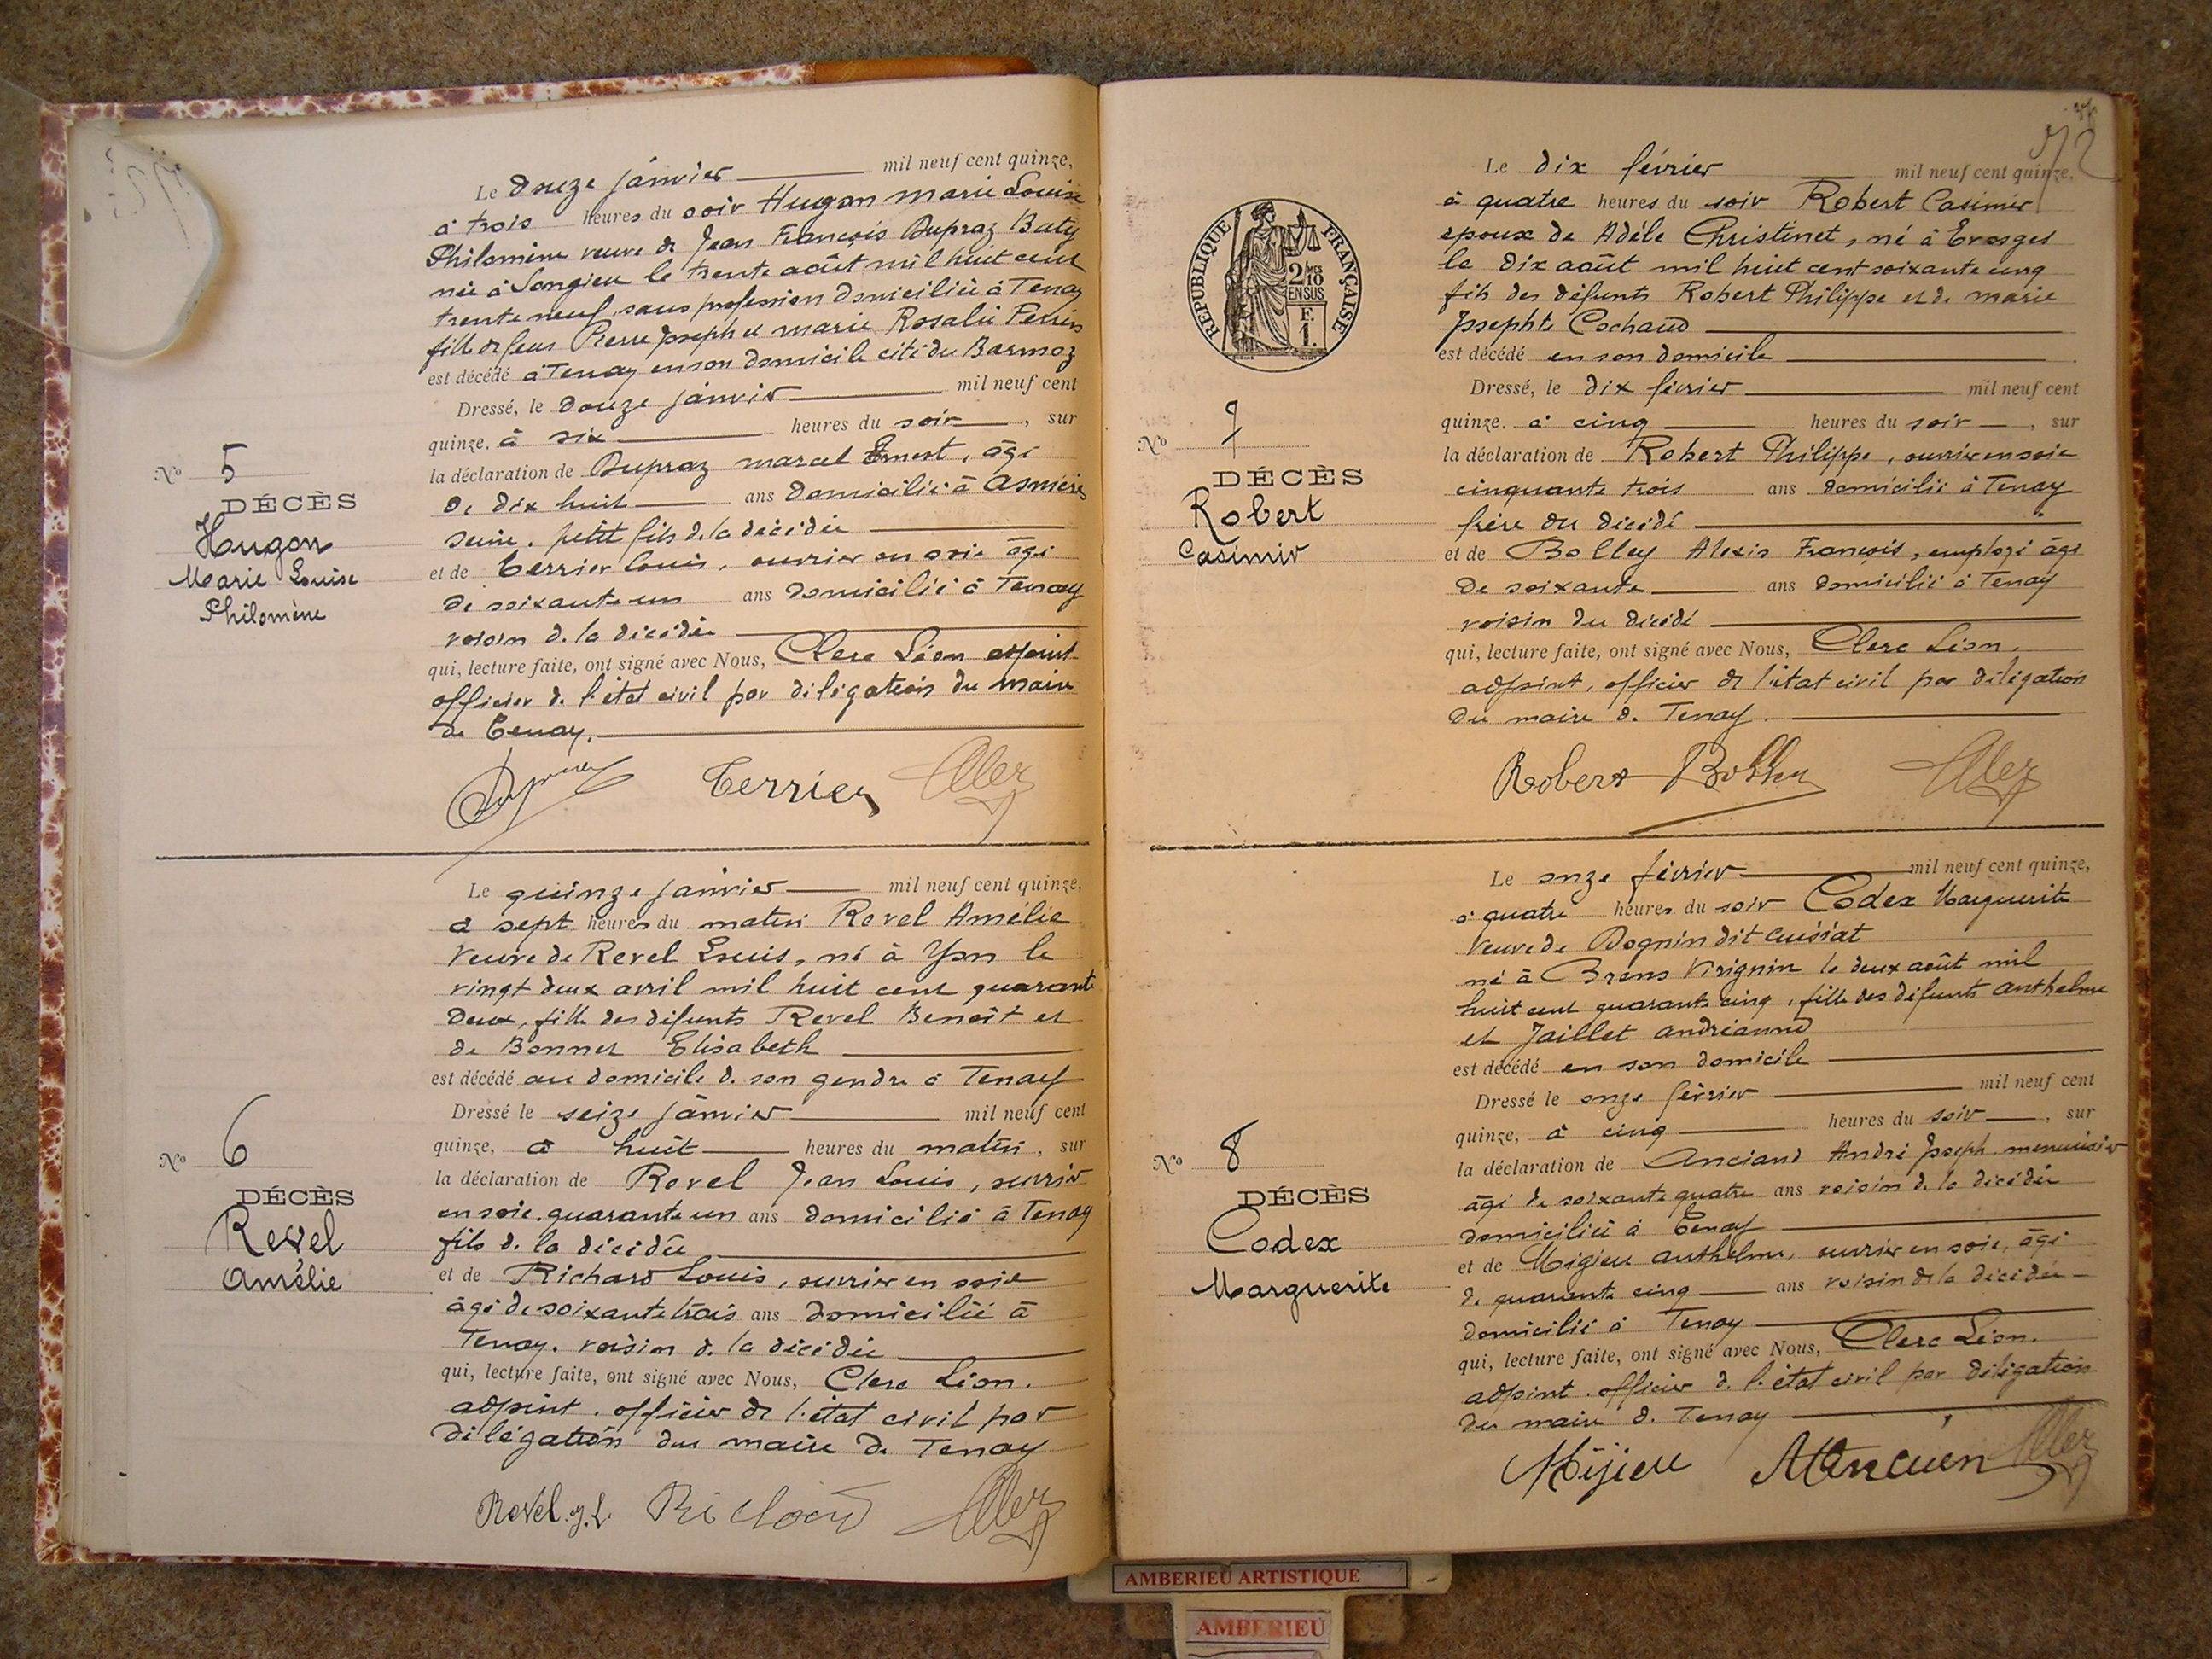 Le douze janvier mil neuf cent quinze,
à trois heures du soir Hugon Marie Louise
Philomène veuve de Jean François Dupraz Baty
née à Songieu le trente août mil huit cent
trente neuf, sans profession domiciliée à Tenay
fille de feus Pierre Joseph et Marie Rosalie Perrin
est décédé à Tenay en son domicile cité du Barmoz
Dressé, le douze janvier mil neuf cent
quinze, à six heures du soir, sur
la déclaration de Dupraz Marcel Ernest, âgé
de dix huit ans domicilié à Asnières
Seine, petit fils de la décédée
et de Terrier Louis, ouvrier en soie âgé
de soixante un ans domicilié à Tenay
voisin de la décédée
qui, lecture faite, ont signé avec Nous, Clerc Léon adjoint
officier de l'état civil par délégation du maire
de Tenay.
Terrier
No 5
DÉCÈS
Hugon
Marie Louise
Philomène
Le quinze janvier mil neuf cent quinze,
à sept heures du matin Revel Amélie
veuve de Revel Louis, né à Yon le
vingt deux avril mil huit cent quarante
deux, fille des défunts Revel Benoît et
de Bonnet Elisabeth
est décédé au domicile de son gendre à Tenay
Dressé le seize janvier mil neuf cent
quinze, à huit heures du matin, sur
la déclaration de Revel Jean Louis, ouvrier
en soie, quarante un ans domicilié à Tenay
fils de la décédée
et de Richard Louis, ouvrier en soie
âgé de soixante trois ans domicilié à
Tenay, voisin de la décédée
qui, lecture faite, ont signé avec Nous, Clerc Léon,
adjoint, officier de l'état civil par
délégation du maire de Tenay
Revel. J. L. Richard
No 6
DÉCÈS
Revel
Amélie
RÉPUBLIQUE FRANÇAISE
2/10
EN SUS
F.
1.
Le dix février mil neuf cent quinze,
à quatre heures du soir Robert Casimir
époux de Adèle Christinet, né à Evosges
le dix août mil huit cent soixante cinq
fils des défunts Robert Philippe et de Marie
Josephte Cochaud
est décédé en son domicile
Dressé, le dix février mil neuf cent
quinze. à cinq heures du soir, sur
la déclaration de Robert Philippe, ouvrier en soie
cinquante trois ans domicilié à Tenay
frère du décédé
et de Bolley Alexis François, employé âgé
de soixante ans domicilié à Tenay
voisin du décédé
qui, lecture faite, ont signé avec Nous, Clerc Léon,
adjoint, officier de l'état civil par délégation
du maire de Tenay.
Robert Bolley
No 7
DÉCÈS
Robert
Casimir
Le onze février mil neuf cent quinze,
à quatre heures du soir Codex Marguerite
veuve de Dognin dit Cuisiat
né à Brens Virignin le deux août mil
huit cent quarante cinq, fille des défunts Anthelme
et Jaillet Andréanne
est décédé en son domicile
Dressé le onze février mil neuf cent
quinze, à cinq heures du soir, sur
la déclaration de André Joseph, menuisier
âgé de soixante quatre ans voisin de la décédée
domicilié à Tenay
et de Migieu Anthelme, ouvrier en soie, âgé
de quarante cinq ans voisin de la décédée
domicilié à Tenay
qui, lecture faite, ont signé avec Nous, Clerc Léon,
adjoint, officier de l'état civil par délégation
du maire de Tenay
No 8
DÉCÈS
Codex
Marguerite
AMBERIEU ARTISTIQUE
AMBERIEU